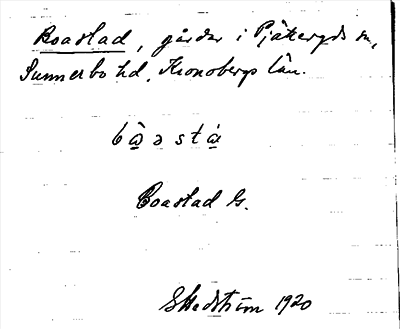 Boastad, gårdar i Pjätteryds sn,
Sunnerbo hd, Kronobergs län.
Boastad G.
1920